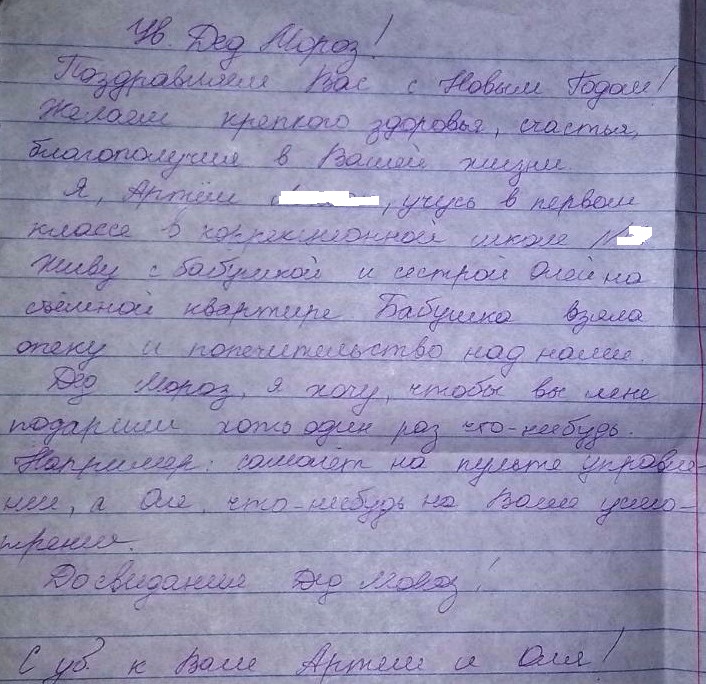 Ув. Дед Мороз!
Поздравляем Вас с Новым Годом!
Желаем крепкого здоровья, счастья,
благополучия в Вашей жизни.
Я, Артём, учусь в первом
классе в коррекционной школе №
Живу с бабушкой и сестрой Олей на
съёмной квартире Бабушка взяла
опеку и попечительство над нами.
Дед Мороз, я хочу, чтобы вы мне
подарили хоть один раз что-нибудь.
Например: самолёт на пульте управле-
нии, а Оле, что-нибудь на Ваше усмо-
трение.
Досвидания Дед Мороз!
С ув. к Вам Артём и Оля!